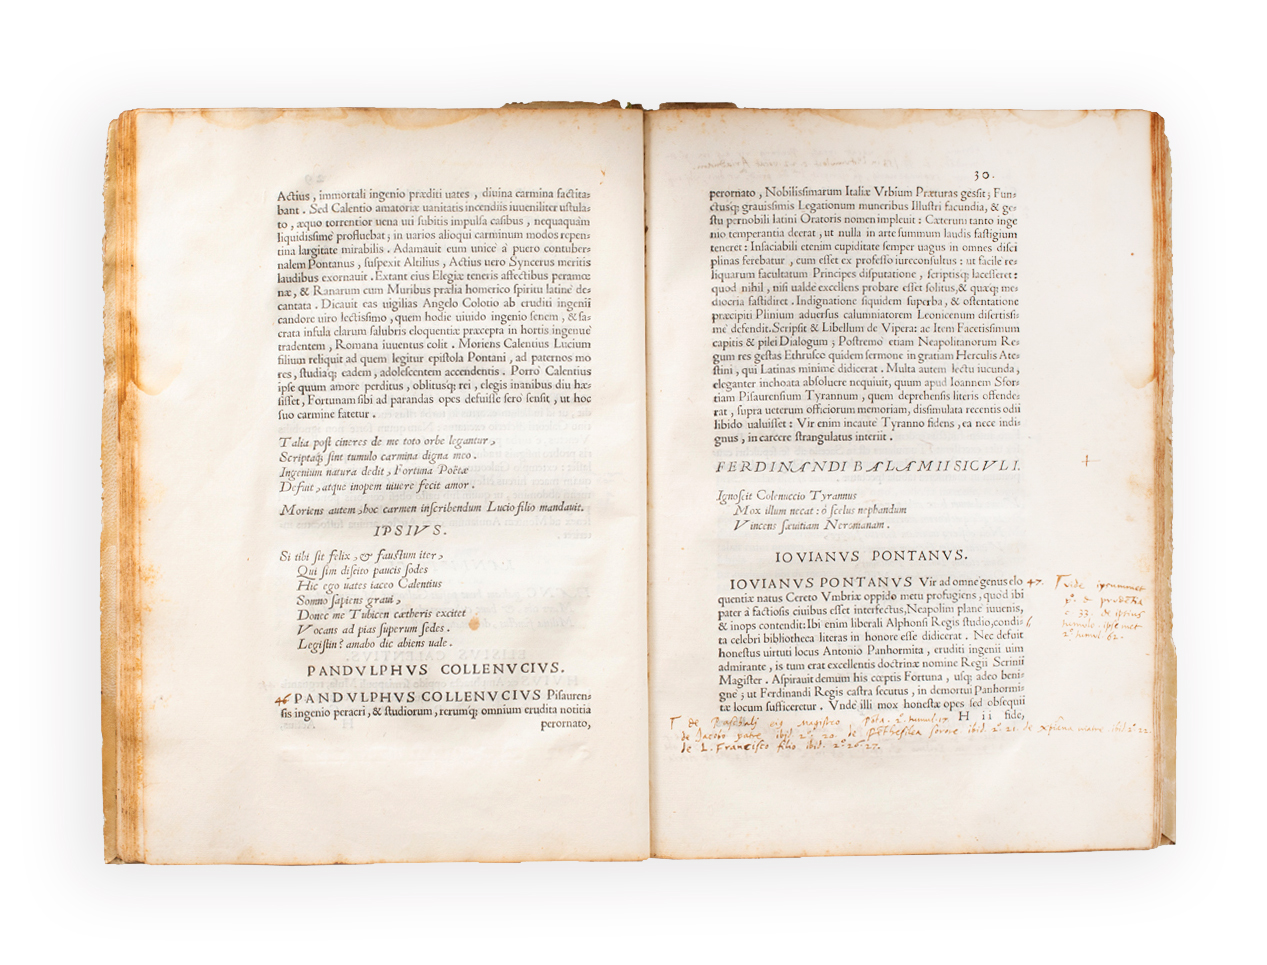 Actius, immortali ingenio præditi uates, diuina carmina factita-
bant. Sed Calentio amatoriæ uanitatis incendiis iuueniliter ustula-
to, æquo torrentior uena uti subitis impulsa casibus, nequaquam
liquidissime profluebat; in uarios alioqui carminum modos repen-
tina largitate mirabilis. Adamauit eum unice a puero contuber-
nalem Pontanus, suspexit Altilius, Actius uero Syncerus meritis
laudibus exornauit. Extant eius Elegiæ teneris affectibus peramœ
næ, & Ranarum cum Muribus prælia homerico spiritu latine de-
cantata. Dicauit eas uigilias Angelo Colotio ab eruditi ingenii
candore uiro lectissimo, quem hodie uiuido ingenio senem, & sa-
crata insula clarum salubris eloquentiæ præcepta in hortis ingenue
tradentem, Romana iuuentus colit. Moriens Calentius Lucium
filium reliquit ad quem legitur epistola Pontani, ad paternos mo
res, studiaq; eadem, adolescentem accendentis. Porro Calentius
ipse quum amore perditus, oblitusq; rei, elegis inanibus diu hæ-
sisset, Fortunam sibi ad parandas opes defuisse sero sensit, ut hoc
suo carmine fatetur.
Talia post cineres de me toto orbe legantur,
Scriptaq; sint tumulo carmina digna meo.
Ingenium natura dedit, Fortuna Poëtæ
Defuit, atque inopem uiuere fecit amor.
Moriens autem, hoc carmen inscribendum Lucio filio mandauit.
IPSIVS.
Si tibi sit felix, & faustum iter,
Qui sim discito paucis sodes
Hic ego uates iaceo Calentius
Somno sapiens graui,
Donec me Tubicen cætheris excitet
Vocans ad pias superum sedes.
Legistin? amabo dic abiens uale.
PANDVLPHVS COLLENVCIVS.
46 PANDVLPHVS COLLENVCIVS Pisauren-
sis ingenio peracri, & studiorum, rerumq; omnium erudita notitia
perornato,
30.
perornato, Nobilissimarum Italiæ Vrbium Præturas gessit; Fun-
ctusq; grauissimis Legationum muneribus Illustri facundia, & ge-
stu pernobili latini Oratoris nomen impleuit: Cæterum tanto inge
nio temperantia deerat, ut nulla in arte summum laudis fastigium
teneret: Insaciabili etenim cupiditate semper uagus in omnes disci
plinas ferebatur, cum esset ex professo iureconsultus: ut facile re-
liquarum facultatum Principes disputatione, scriptisq; lacesseret:
quod nihil, nisi ualde excellens probare esset solitus, & quæq; me-
diocria fastidiret. Indignatione siquidem superba, & ostentatione
præcipiti Plinium aduersus calumniatorem Leonicenum disertissi-
me defendit. Scripsit & Libellum de Vipera: ac Item Facetissimum
capitis & pilei Dialogum; Postremo etiam Neapolitanorum Re-
gum res gestas Ethrusco quidem sermone in gratiam Herculis Ate-
stini, qui Latinas minime didicerat. Multa autem lectu iucunda,
eleganter inchoata absoluere nequiuit, quum apud Ioannem Sfor-
tiam Pisaurensium Tyrannum, quem deprehensis literis offende-
rat, supra ueterum officiorum memoriam, dissimulata recentis odii
libido ualuisset: Vir enim incaute Tyranno fidens, ea nece indi-
gnus, in carcere strangulatus interiit.
FERDINANDI BALAMII SICVLI.
Ignoscit Colenuccio Tyrannus
Mox illum necat: ó scelus nephandum
Vincens sæuitiam Neronianam.
IOVIANVS PONTANVS.
IOVIANVS PONTANVS Vir ad omne genus elo 47.
quentiæ natus Cereto Vmbriæ oppido metu profugiens, quod ibi
pater á factiosis ciuibus esset interfectus, Neapolim plane iuuenis,
& inops contendit: Ibi enim liberali Alphonsi Regis studio, condi
ta celebri bibliotheca literas in honore esse didicerat. Nec defuit
honestus uirtuti locus Antonio Panhormita, eruditi ingenii uim
admirante, is tum erat excellentis doctrinæ nomine Regii Scrinii
Magister. Aspirauit demum his cœptis Fortuna, usq; adeo beni-
gne; ut Ferdinandi Regis castra secutus, in demortui Panhormi-
tæ locum sufficeretur. Vnde illi mox honestæ opes sed obsequii
H ii fide,
33. de ipsius
tumulo. ipsemet
2° tumul. 62.
magistro
de Jacobo patre ibid. 2° 20. de Penthesilea sorore ibid. 2° 21. de matre ibid 2° 22.
de L. Francisco filio ibid. 2° 26. 27.